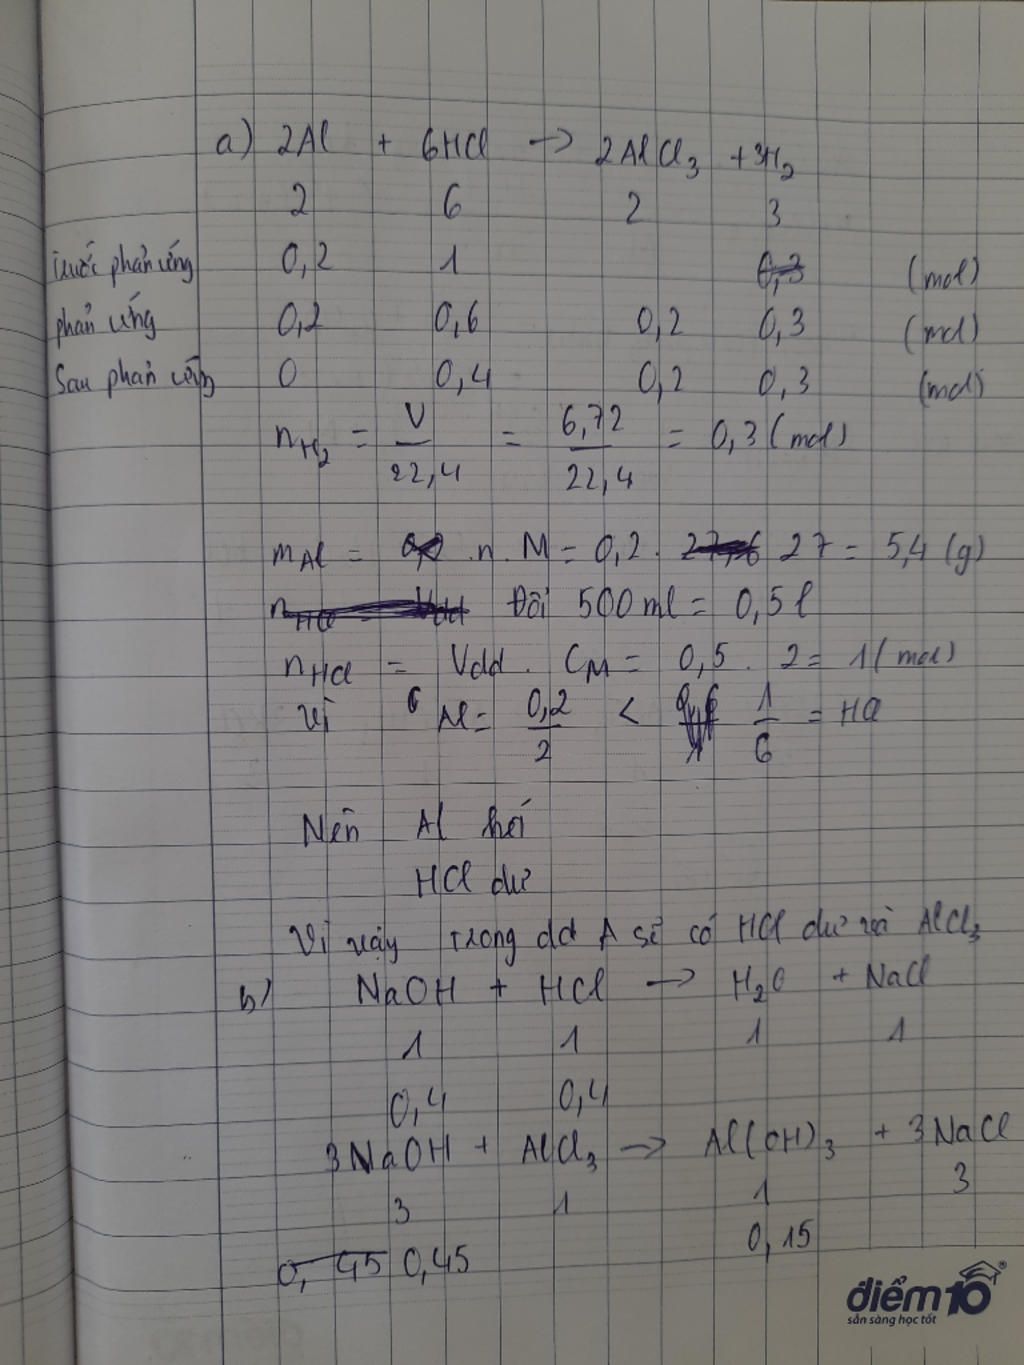 a) 2Al + 6HCl → 2AlCl₃ + 3H₂
2 6 2 3
Trước phản ứng 0,2 1 0,3 (mol)
phản ứng 0,2 0,6 0,2 0,3 (mol)
Sau phản ứng 0 0,4 0,2 0,3 (mol)
nH₂ = V/22,4 = 6,72/22,4 = 0,3 (mol)
mAl = n. M = 0,2. 27 = 5,4 (g)
Đổi 500 ml = 0,5 l
nHCl = Vdd. CM = 0,5. 2 = 1 (mol)
Vì Al = 0,2/2 < 1/6 = HCl
Nên Al hết
HCl dư
Vì vậy trong dd A sẽ có HCl dư và AlCl₃
b) NaOH + HCl → H₂O + NaCl
1 1 1 1
0,4 0,4
3NaOH + AlCl₃ → Al(OH)₃ + 3NaCl
3 1 1 3
0,45 0,45 0,15
điểm10®
sẵn sàng học tốt